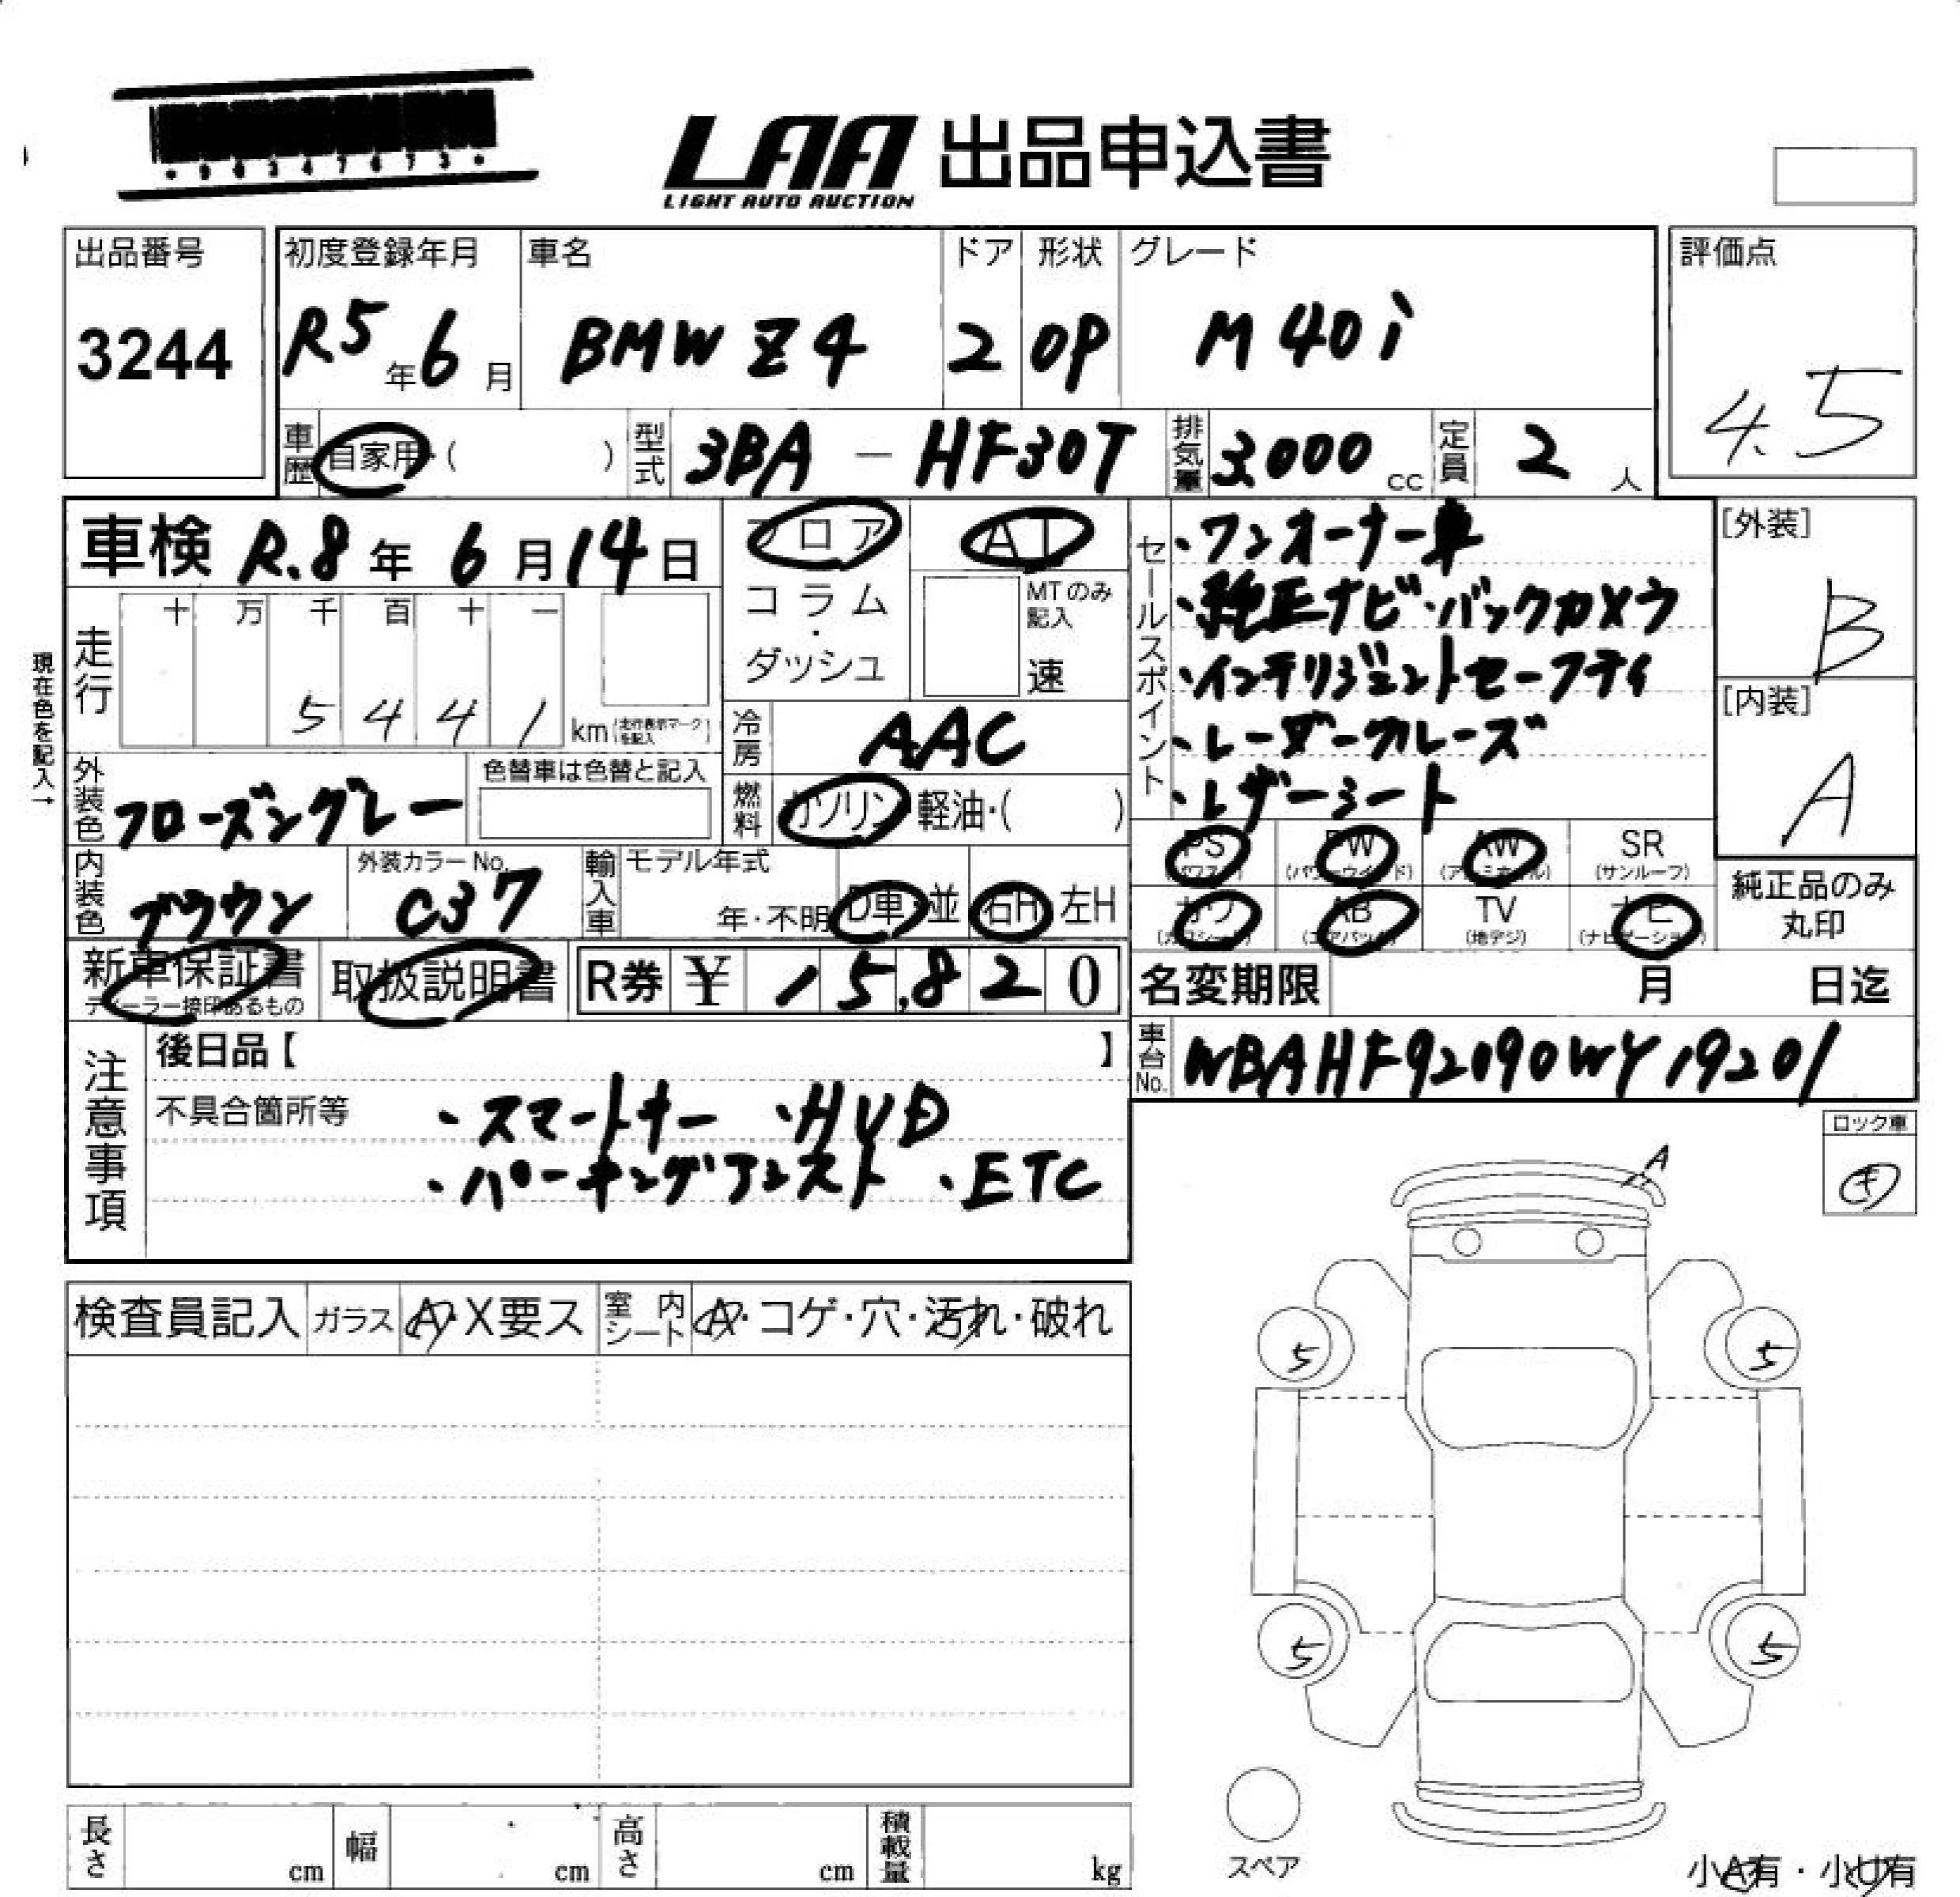 LAA 出品申込書
LIGHT AUTO AUCTION
出品番号 3244
初度登録年月 R5年6月
車名 BMW Z4
ドア 2
形状 OP
グレード M40i
評価点 4.5
車歴 自家用・( )
型式 3BA-HF30T
排気量 3000cc
定員 2人
車検 R.8年6月14日
フロア
コラム・ダッシュ
AT
MTのみ記入
速
現在色を記入→
走行 十 万 千 百 十 一
5441 km(走行表示マークを記入)
冷房 AAC
燃料 ガソリン・軽油・( )
外装色 フローズングレー
色替車は色替と記入
内装色 ブラウン
外装カラーNo. C37
輸入車 モデル年式 年・不明
D車・並 右H 左H
セールスポイント
・ワンオーナー車
・純正ナビ・バックカメラ
・インテリジェントセーフティ
・レーダークルーズ
・レザーシート
[外装] B
[内装] A
PS (パワステ)
PW (パワーウインドウ)
AW (アルミホイル)
SR (サンルーフ)
カワ (カワシート)
AB (エアバック)
TV (地デジ)
ナビ (ナビゲーション)
純正品のみ丸印
新車保証書
ディーラー捺印あるもの
取扱説明書
R券 ¥ 15,820
名変期限 月 日迄
車台No. WBAHF92090WY19201
注意事項
後日品【 】
不具合箇所等
・スマートキー ・HUD
・パーキングアシスト ・ETC
ロック車
キ
A
検査員記入 ガラス A・X要ス 室内シート A・コゲ・穴・汚れ・破れ
5 5
5 5
スペア
小A有・小U有
長さ cm 幅 cm 高さ cm 積載量 kg